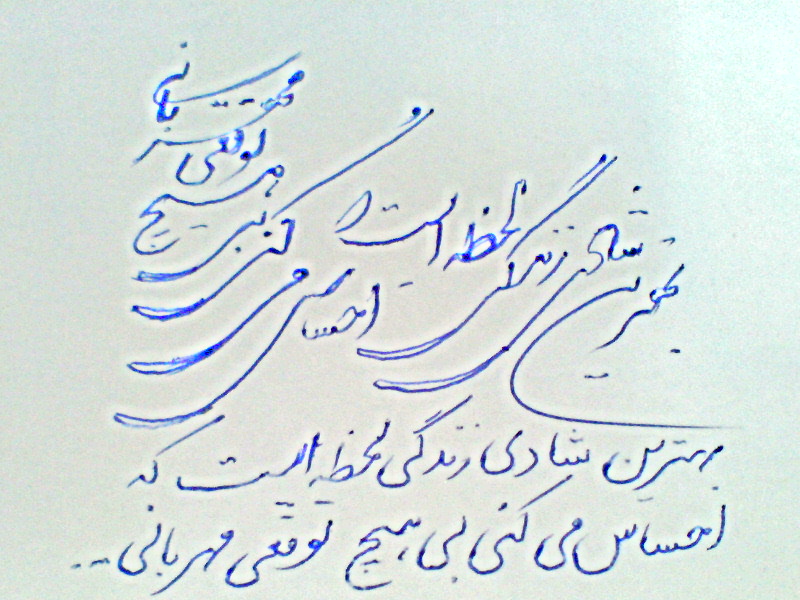 بهترین شادی زندگی لحظه ایست که
احساس می کنی بی هیچ توقعی مهربانی
بهترین شادی زندگی لحظه ایست که
احساس می کنی بی هیچ توقعی مهربانی...